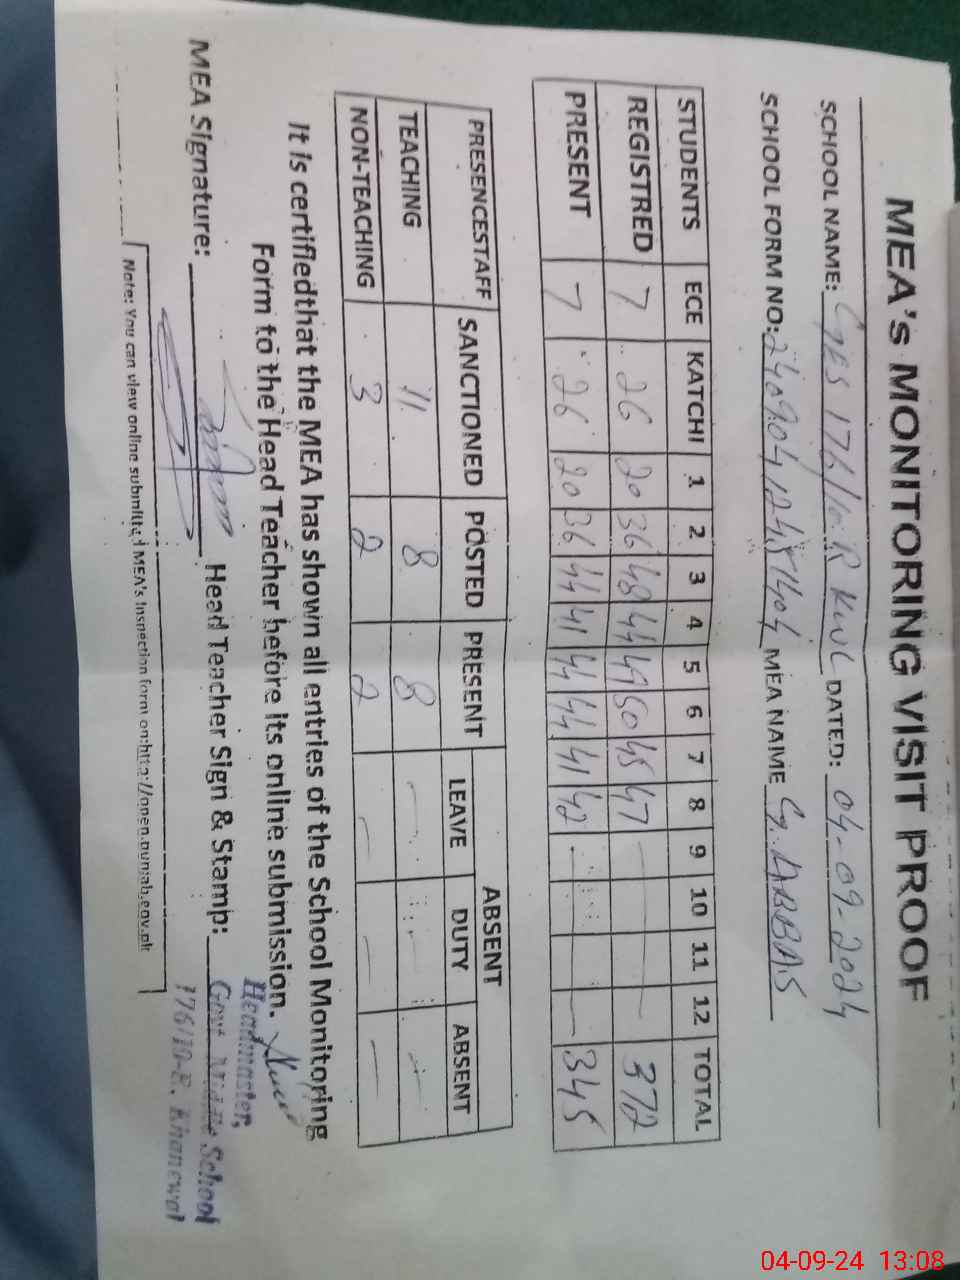 MEA's MONITORING VISIT PROOF
SCHOOL NAME: GES 176/10-R KWL DATED: 04-09-2024
SCHOOL FORM NO: MEA NAME G. ABBAS
STUDENTS ECE KATCHI 1 2 3 4 5 6 7 8 9 10 11 12 TOTAL
REGISTRED 7 26 20 36 48 44 49 50 45 47 — — 372
PRESENT 7 26 20 36 44 41 44 44 41 42 — — 345
PRESENCESTAFF SANCTIONED POSTED PRESENT ABSENT
LEAVE DUTY ABSENT
TEACHING 11 8 8 — — —
NON-TEACHING 3 2 2 — — —
It is certifiedthat the MEA has shown all entries of the School Monitoring
Form to the Head Teacher before its online submission.
MEA Signature: Head Teacher Sign & Stamp:
Headmaster,
Govt Middle School
176/10-R. Khanewal
Note: You can view online submitted MEA's Inspection form on:http://open.punjab.gov.pk
04-09-24 13:08